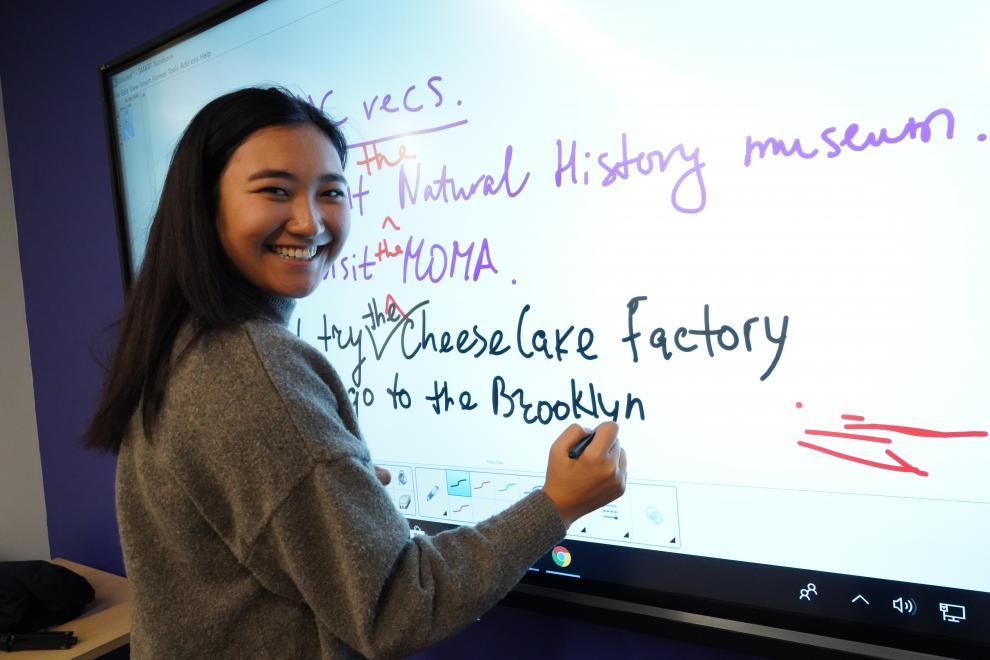 recs.
the
Natural History museum.
the MOMA.
try the Cheese Cake Factory
go to the Brooklyn